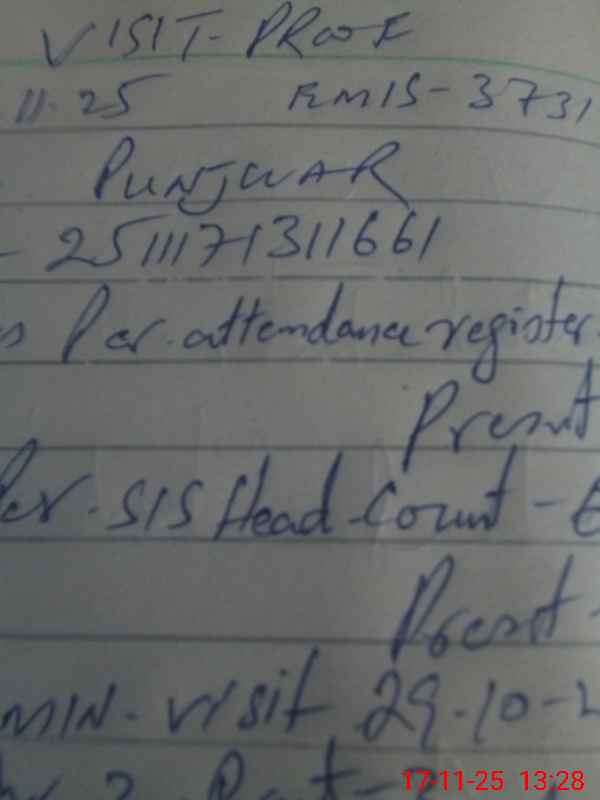 VISIT-PROOF
11-25 EMIS-3731
PUNJWAR
- 25111171311661
s Per. attendance register.
Present
Per. SIS Head Count -
Present -
MIN. visit 29-10-
17-11-25 13:28